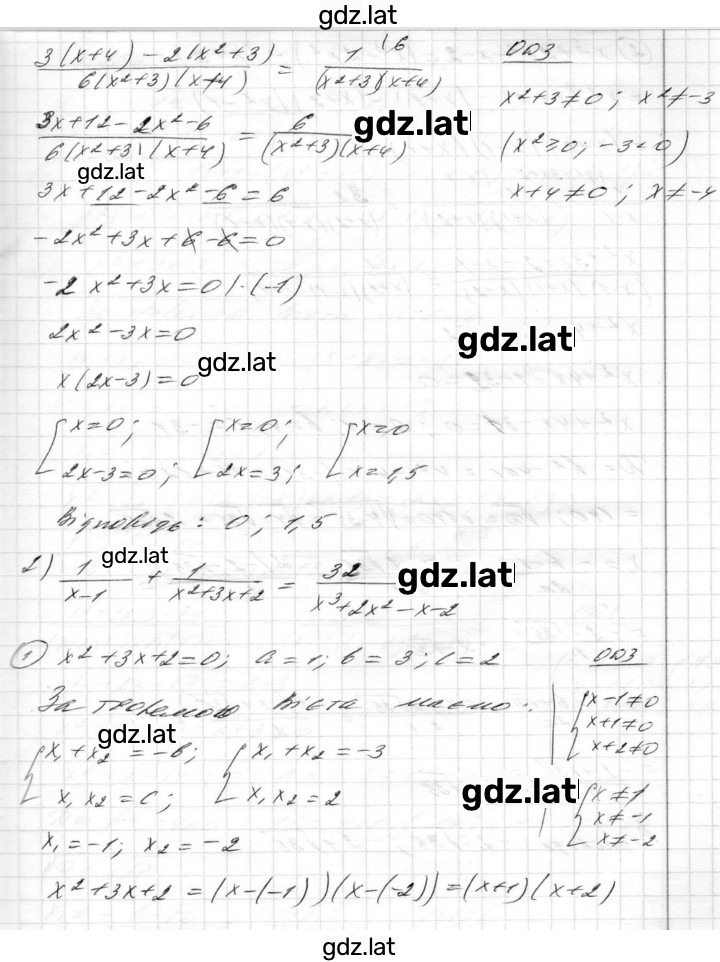 gdz.lat
3(x+4) - 2(x²+3) / 6(x²+3)(x+4) = 1\6 / (x²+3)(x+4)
ОДЗ
x²+3≠0; x²≠-3
3x+12-2x²-6 / 6(x²+3)(x+4) = 6 / (x²+3)(x+4)
gdz.lat
(x²≥0; -3<0)
gdz.lat
3x+12-2x²-6=6
x+4≠0; x≠-4
-2x²+3x+6-6=0
-2x²+3x=0 |·(-1)
2x²-3x=0
gdz.lat
gdz.lat
x(2x-3)=0
[x=0; [x=0; [x=0
2x-3=0; 2x=3; x=1,5
Відповідь: 0; 1,5
gdz.lat
2) 1/(x-1) + 1/(x²+3x+2) = 32/(x³+2x²-x-2)
gdz.lat
① x²+3x+2=0; a=1; b=3; c=2
ОДЗ
За теоремою Вієта маємо:
{x-1≠0
x+1≠0
x+2≠0
gdz.lat
{x₁+x₂=-b; {x₁+x₂=-3
x₁x₂=c; x₁x₂=2
gdz.lat
{x≠1
x≠-1
x≠-2
x₁=-1; x₂=-2
x²+3x+2=(x-(-1))(x-(-2))=(x+1)(x+2)
gdz.lat